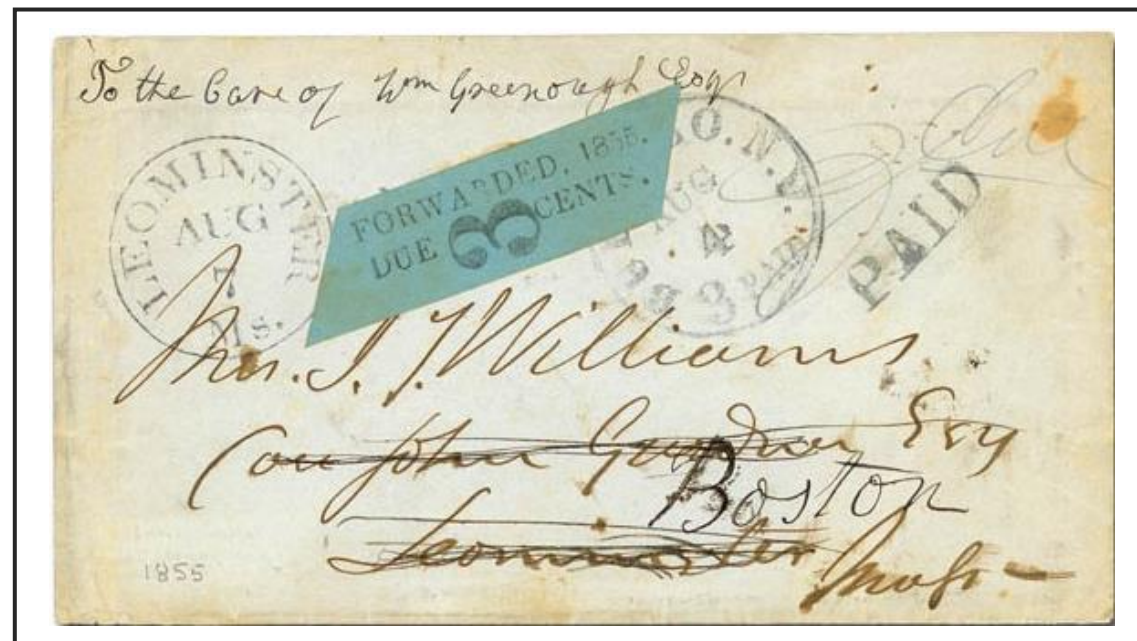 To the Care of Wm Greenough Esqr
LEOMINSTER
AUG
7
Ms.
FORWARDED, 1855.
DUE 3 CENTS.
O. N.Y.
AUG
4
3 PAID
PAID
Mrs. J. J. Williams
Care John Esq
Boston
Leominster Mass
1855